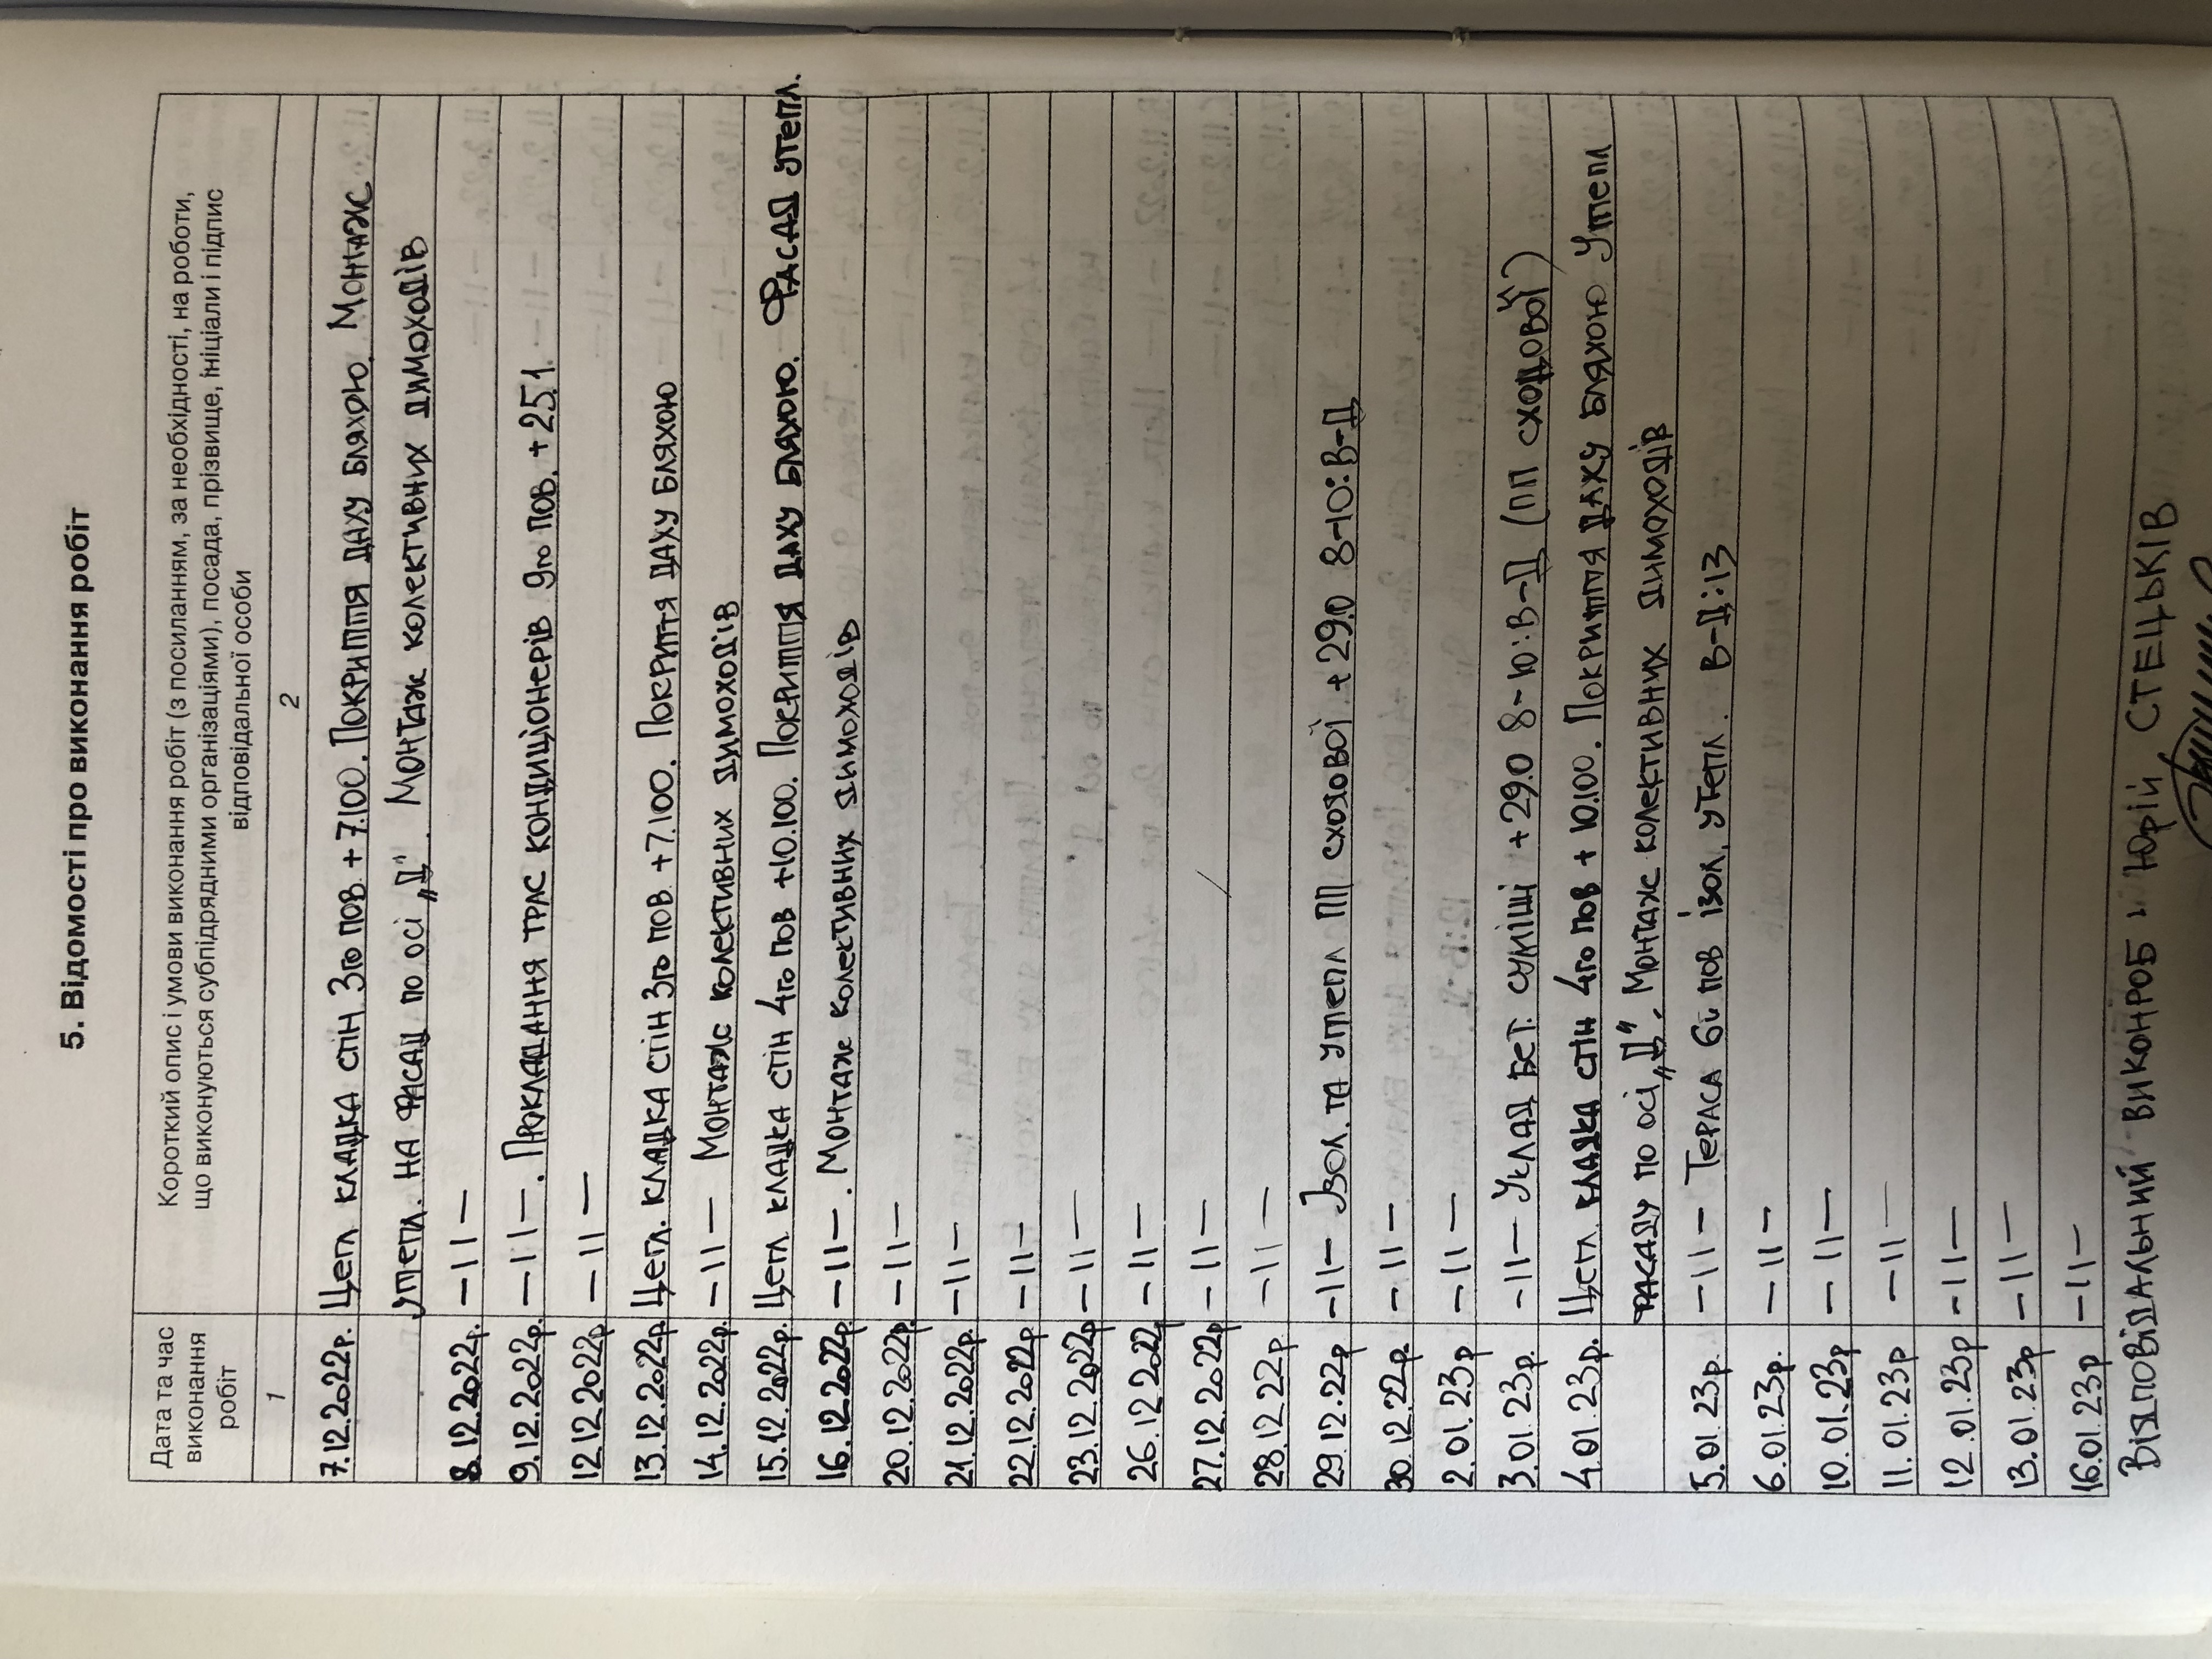 5. Відомості про виконання робіт
Дата та час
виконання
робіт
Короткий опис і умови виконання робіт (з посиланням, за необхідності, на роботи,
що виконуються субпідрядними організаціями), посада, прізвище, ініціали і підпис
відповідальної особи
1 2
7.12.2022р. Цегл кладка стін 3го пов + 7.100. Покриття даху бляхою. Монтаж
утепл. на фасад по осі „Д". Монтаж колективних димоходів
8.12.2022р. — 11 —
9.12.2022р. — 11 —. Прокладання трас кондиціонерів 9го пов. + 25.1.
12.12.2022р — 11 —
13.12.2022р Цегл. кладка стін 3го пов. + 7.100. Покриття даху бляхою
14.12.2022р. — 11 — Монтаж колективних димоходів
15.12.2022р. Цегл. кладка стін 4го пов +10.100. Покриття даху бляхою. Фасад утепл.
16.12.2022р — 11 —. Монтаж колективних димоходів
20.12.2022р. — 11 —
21.12.2022р. — 11 —
22.12.2022р. — 11 —
23.12.2022р — 11 —
26.12.2022р — 11 —
27.12.2022р — 11 —
28.12.22р — 11 —
29.12.22р — 11 — Ізол. та утепл ПП сходової + 29.0 8-10:В-Д
30.12.22р. — 11 —
2.01.23р — 11 —
3.01.23р. — 11 — Уклад бет. суміші + 29.0 8-10:В-Д (ПП сходової)
4.01.23р. Цегл. кладка стін 4го пов + 10.100. Покриття даху бляхою Утепл
фасаду по осі „Д". Монтаж колективних димоходів
5.01.23р. — 11 — Тераса 6й пов ізол, утепл. В-Д:13
6.01.23р. — 11 —
10.01.23р — 11 —
11.01.23р — 11 —
12.01.23р — 11 —
13.01.23р — 11 —
16.01.23р — 11 —
Відповідальний виконроб: Юрій СТЕЦЬКІВ